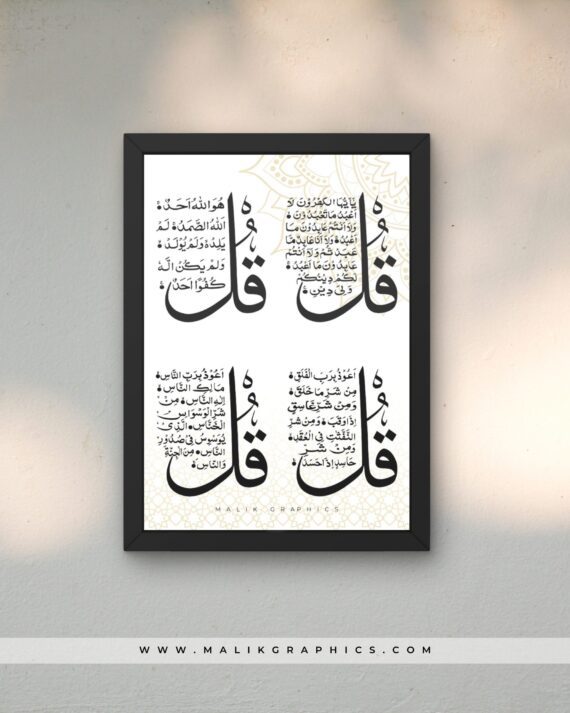 قُلْ
يٰٓاَيُّهَا الْكٰفِرُوْنَ لَآ
اَعْبُدُ مَا تَعْبُدُوْنَ
وَلَآ اَنْتُمْ عَابِدُوْنَ مَا
اَعْبُدُ وَلَآ اَنَا عَابِدٌ مَّا
عَبَدْتُّمْ وَلَآ اَنْتُمْ
عَابِدُوْنَ مَا اَعْبُدُ
لَكُمْ دِيْنُكُمْ
وَلِيَ دِيْنِ
قُلْ
هُوَ اللّٰهُ اَحَدٌ
اَللّٰهُ الصَّمَدُ لَمْ
يَلِدْ وَلَمْ يُوْلَدْ
وَلَمْ يَكُنْ لَّهٗ
كُفُوًا اَحَدٌ
قُلْ
اَعُوْذُ بِرَبِّ الْفَلَقِ
مِنْ شَرِّ مَا خَلَقَ
وَمِنْ شَرِّ غَاسِقٍ
اِذَا وَقَبَ وَمِنْ شَرِّ
النَّفّٰثٰتِ فِي الْعُقَدِ
وَمِنْ شَرِّ
حَاسِدٍ اِذَا حَسَدَ
قُلْ
اَعُوْذُ بِرَبِّ النَّاسِ
مَالِكِ النَّاسِ
اِلٰهِ النَّاسِ مِنْ
شَرِّ الْوَسْوَاسِ
الْخَنَّاسِ الَّذِيْ
يُوَسْوِسُ فِيْ صُدُوْرِ
النَّاسِ مِنَ الْجِنَّةِ
وَالنَّاسِ
MALIK GRAPHICS
WWW.MALIKGRAPHICS.COM